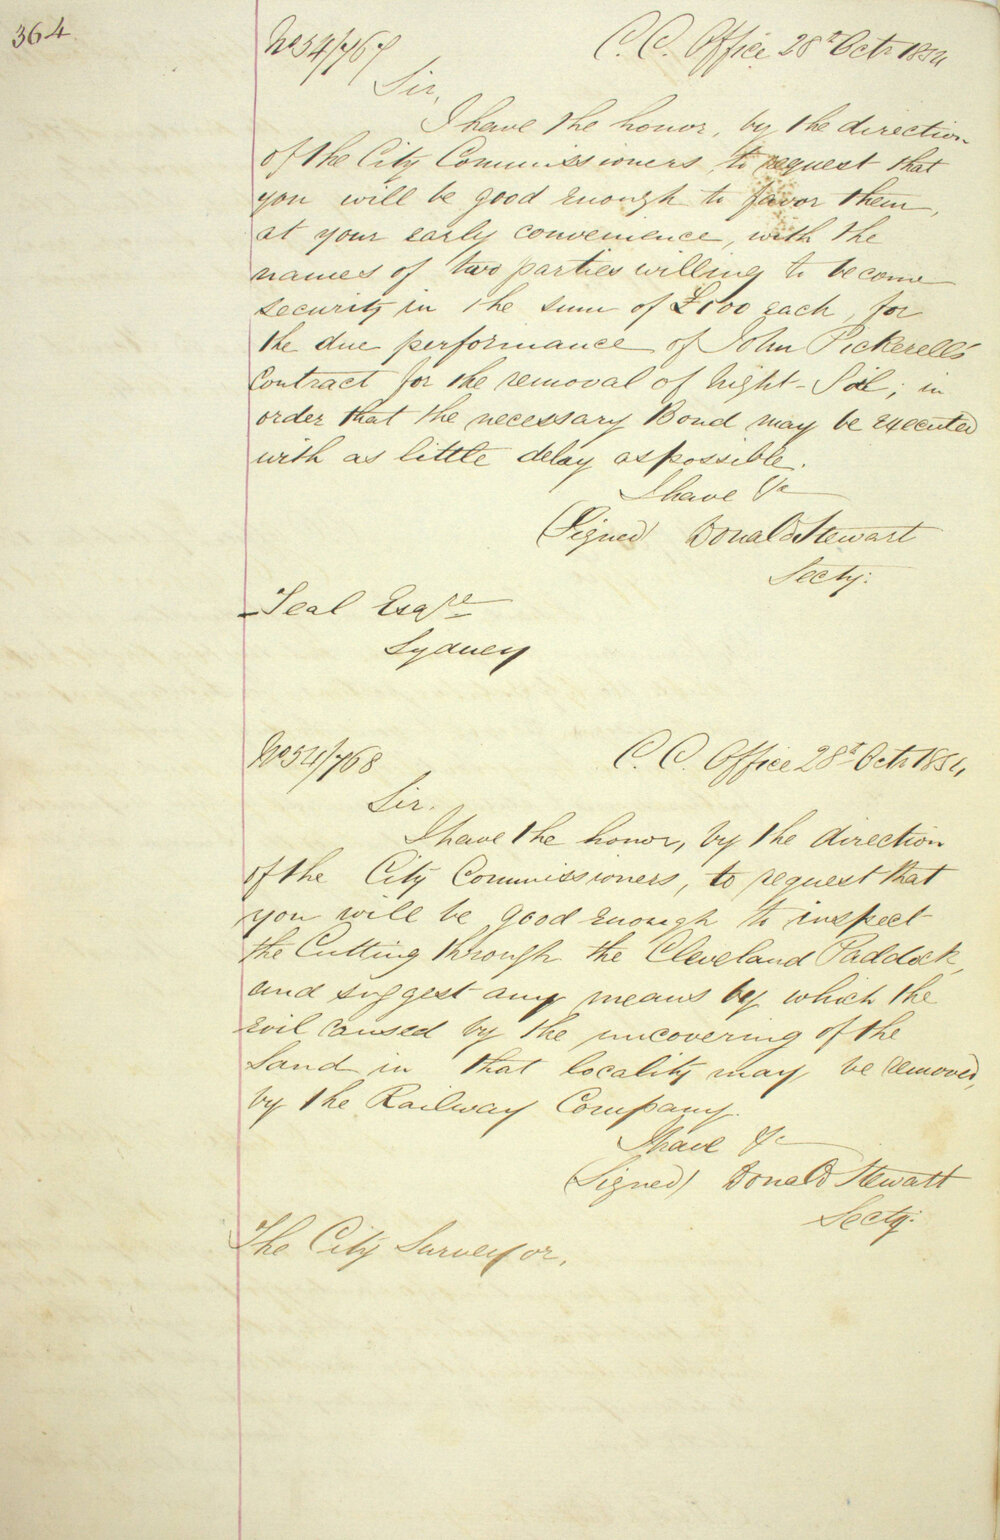 364
No 54/767
C. C. Office 28th Octr 1854
Sir,
I have the honor, by the direction
of the City Commissioners, to request that
you will be good enough to favor them,
at your early convenience, with the
names of two parties willing to become
security in the sum of £100 each, for
the due performance of John Pickerell's
Contract for the removal of Night-Soil; in
order that the necessary Bond may be executed
with as little delay as possible.
I have &c
(Signed) Donald Stewart
Secty:
- Teal Esqre
Sydney
No 54/768
C. C. Office 28th Octr 1854
Sir.
I have the honor, by the direction
of the City Commissioners, to request that
you will be good enough to inspect
the Cutting through the Cleveland Paddock,
and suggest any means by which the
evil caused by the uncovering of the
Sand in that locality may be removed,
by the Railway Company.
I have &c
(Signed) Donald Stewart
Secty:
The City Surveyor.